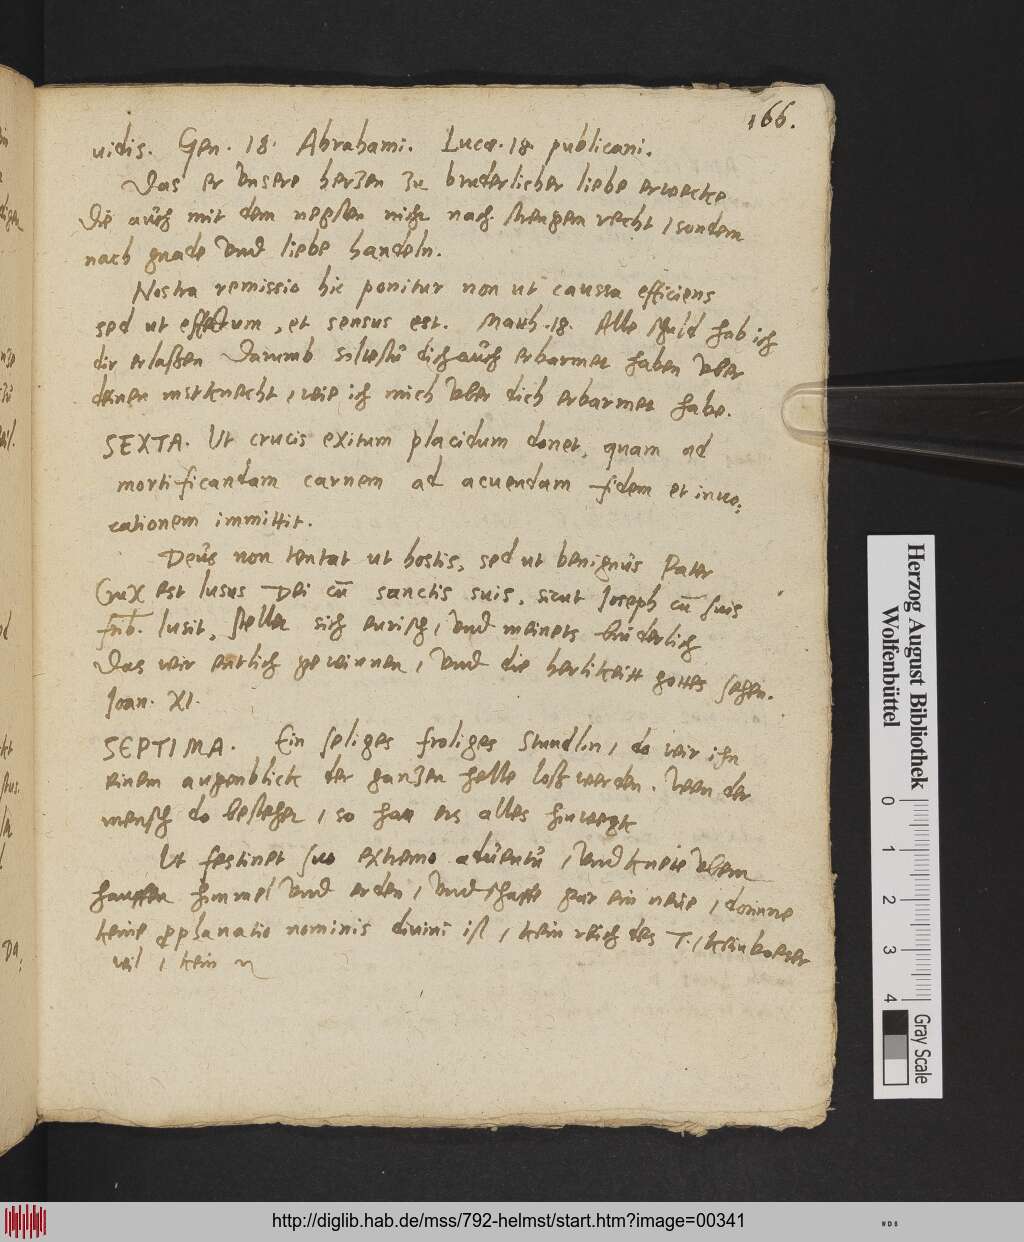 166.
uidis. Gen. 18. Abrahami. Lucæ. 18. publicani.
Das er vnsere herzen zu bruderlicher liebe erwecke
Die auch mit dem negsten nicht nach strengem recht, sondern
nach gnade vnd liebe handeln.
Nostra remissio hic ponitur non ut caussa efficiens
sed ut effectum, et sensus est. Math. 18. Alle schuld hab ich
dir erlaßen Darumb soltestu dich auch erbarmet haben vber
deinen mitknecht, wie ich mich vber dich erbarmet habe.
SEXTA. Ut crucis exitum placidum donet, quam ad
mortificandam carnem ad acuendam fidem et inuo:
cationem immittit.
Deus non tentat ut hostis, sed ut benignus Pater
Crux est lusus Dei cū sanctis suis, sicut Joseph cū suis
frīb. lusit, stellet sich , vnd meinets brüderlich
Das wir entlich gewinnen, vnd die herlikeitt gottes sehen.
Joan. XI.
SEPTIMA. Ein seliges froliges Stundlin, do wir ihn
einem augenblick der ganzen helle loß werden. Wen der
mensch do bestehet, so hatt ers alles hinwegk
Ut festinet suo extremo aduentu, vnd vbern
hauffen himmel vnd erden, vnd schaffe gar ein neue, dorinne
keine prophanatio nominis divini ist, kein reich des T., kein boeser
wil, kein
Herzog August Bibliothek
Wolfenbüttel
0 1 2 3 4
Gray Scale
http://diglib.hab.de/mss/792-helmst/start.htm?image=00341